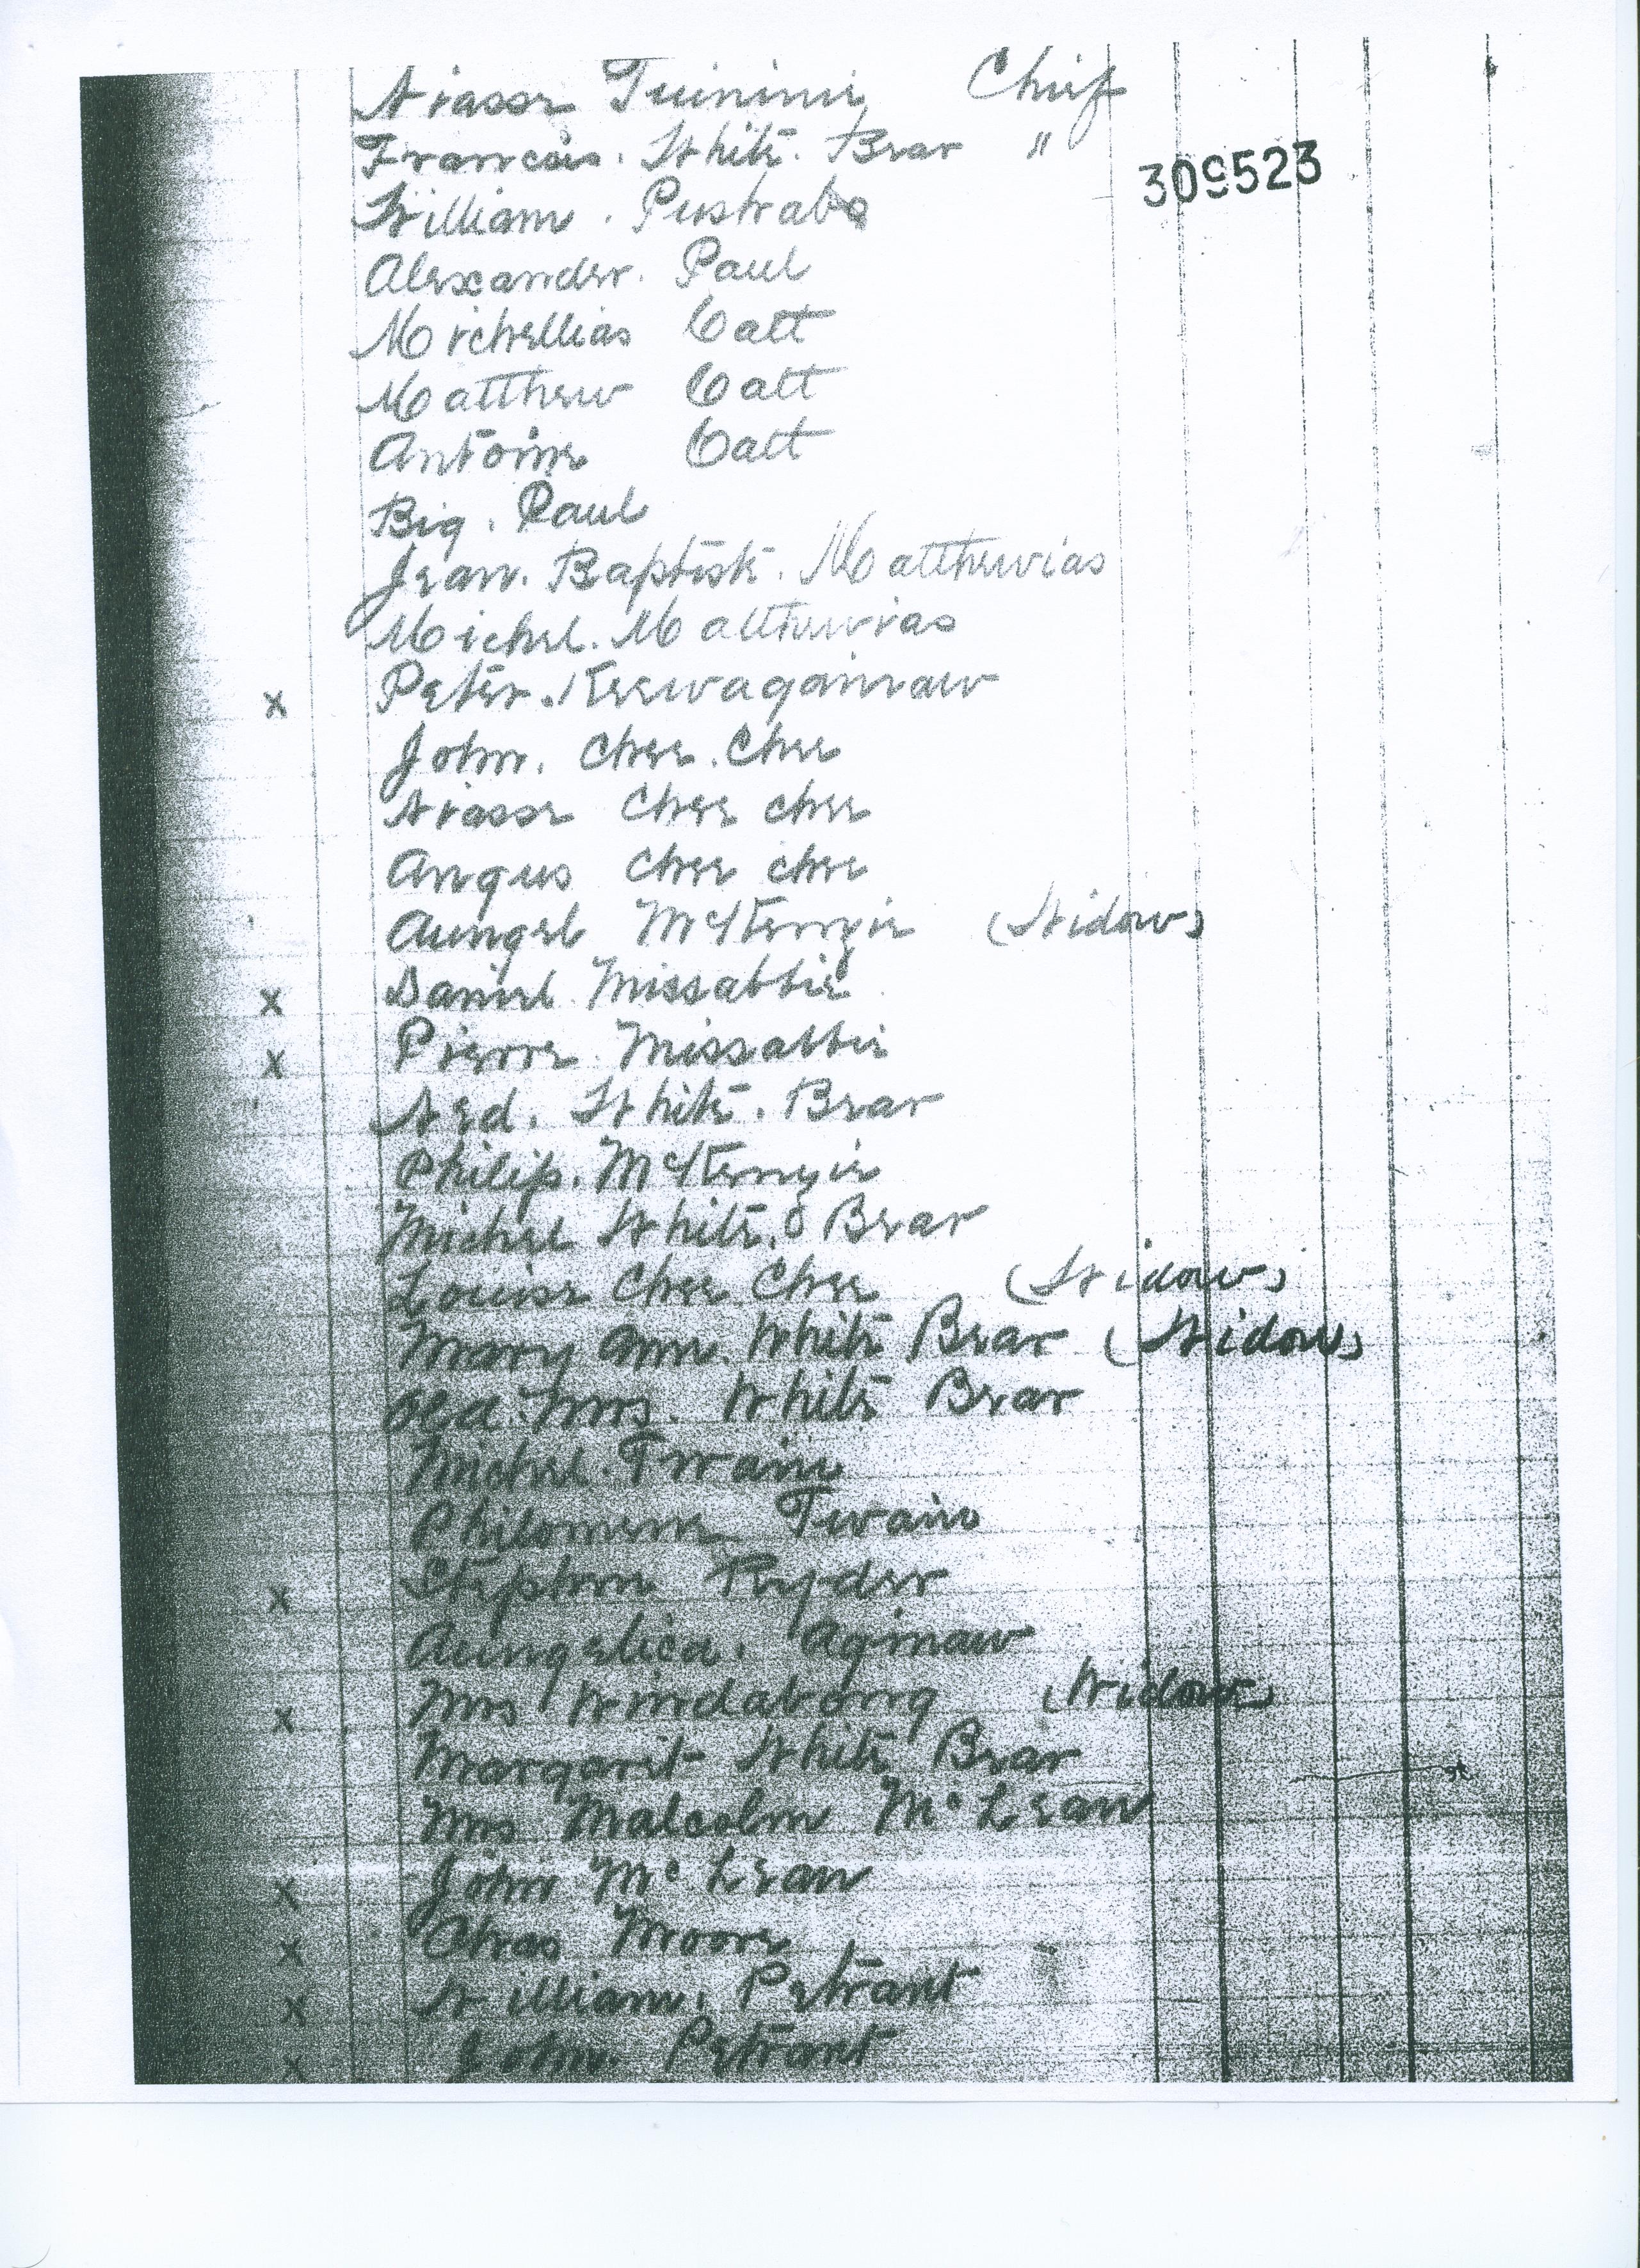 Niasse Chief
Francois. White. Bear "
309523
William.
Alexander. Paul
Michellias Catt
Matthew Catt
Antoine Catt
Big. Paul
Jean. Baptiste. Matthewias
Michel. Matthewias
x Peter. Keewagainaw
John. Chee. Chee
Niasse Chee chee
Angus Chee chee
Aungel McKenzie (Widow)
x Daniel. Missabbie
x Pierre. Missabbie
Ned. White. Bear
Philip. McKenzie
Michel White. Bear
Louise Chee. Chee (Widow)
Mary Ann. White Bear (Widow)
Old. Mrs. White Bear
Michel. Twain
Philomene Twain
x Stephen Ryder
Aungelica. Aginaw
x Mrs Windabaing (Widow)
Margaret White Bear
Mrs Malcolm McLean
x John McLean
x Chas Moore
x William. Petrant
x John. Petrant